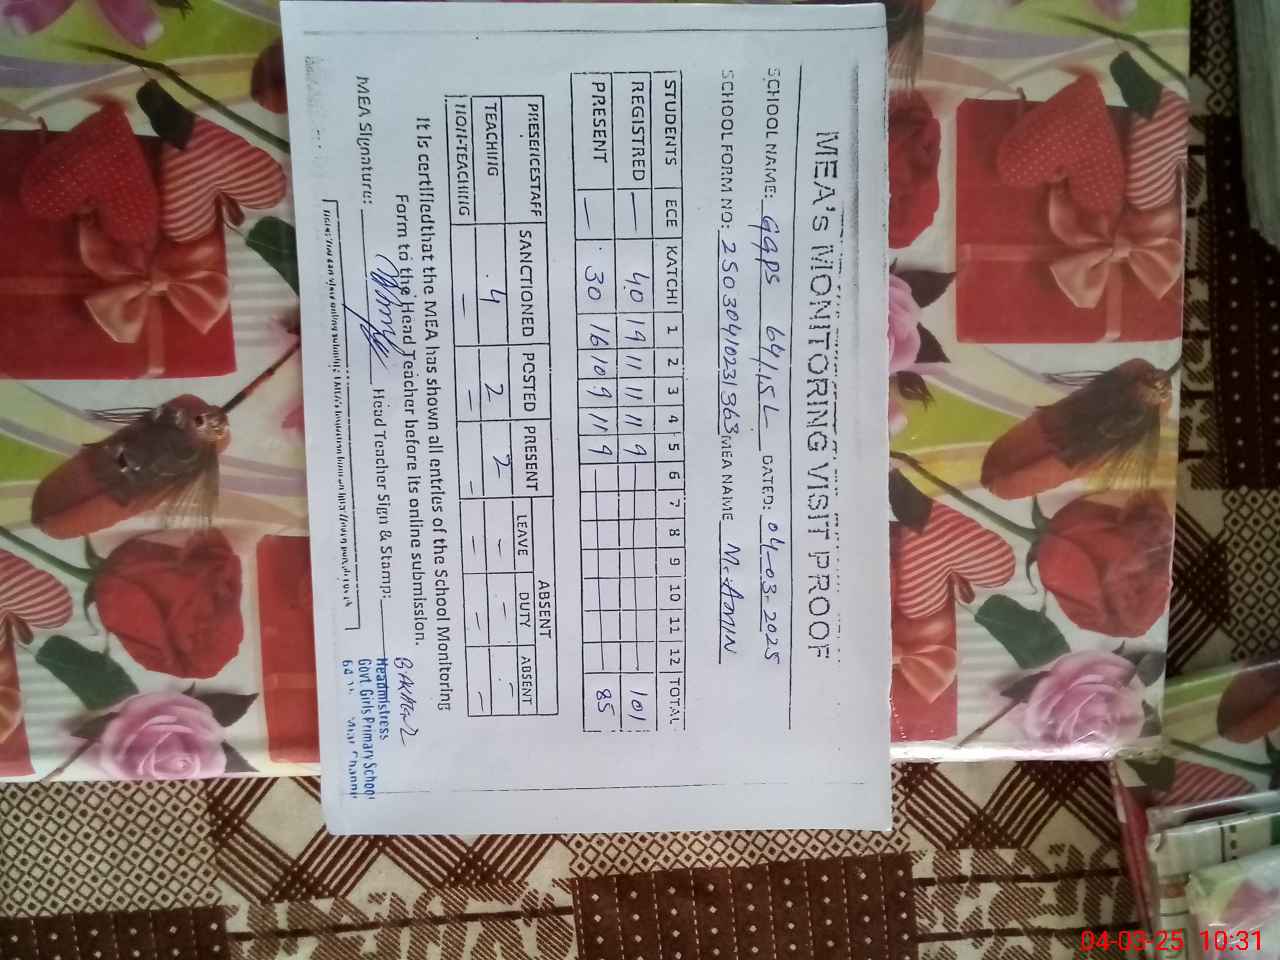 MEA's MONITORING VISIT PROOF
SCHOOL NAME: GGPS 64/15L DATED: 04-03-2025
SCHOOL FORM NO: 25030410231363 MEA NAME M. AMIN
STUDENTS ECE KATCHI 1 2 3 4 5 6 7 8 9 10 11 12 TOTAL
REGISTRED — 40 19 11 11 11 9 101
PRESENT — 30 16 10 9 11 9 85
PRESENCESTAFF SANCTIONED POSTED PRESENT ABSENT
LEAVE DUTY ABSENT
TEACHING 4 2 2 - - -
NON-TEACHING - - - - - -
It is certifiedthat the MEA has shown all entries of the School Monitoring
Form to the Head Teacher before its online submission.
MEA Signature: Head Teacher Sign & Stamp:
Headmistress
Govt. Girls Primary School
Note: You can view online submitted
04-03-25 10:31